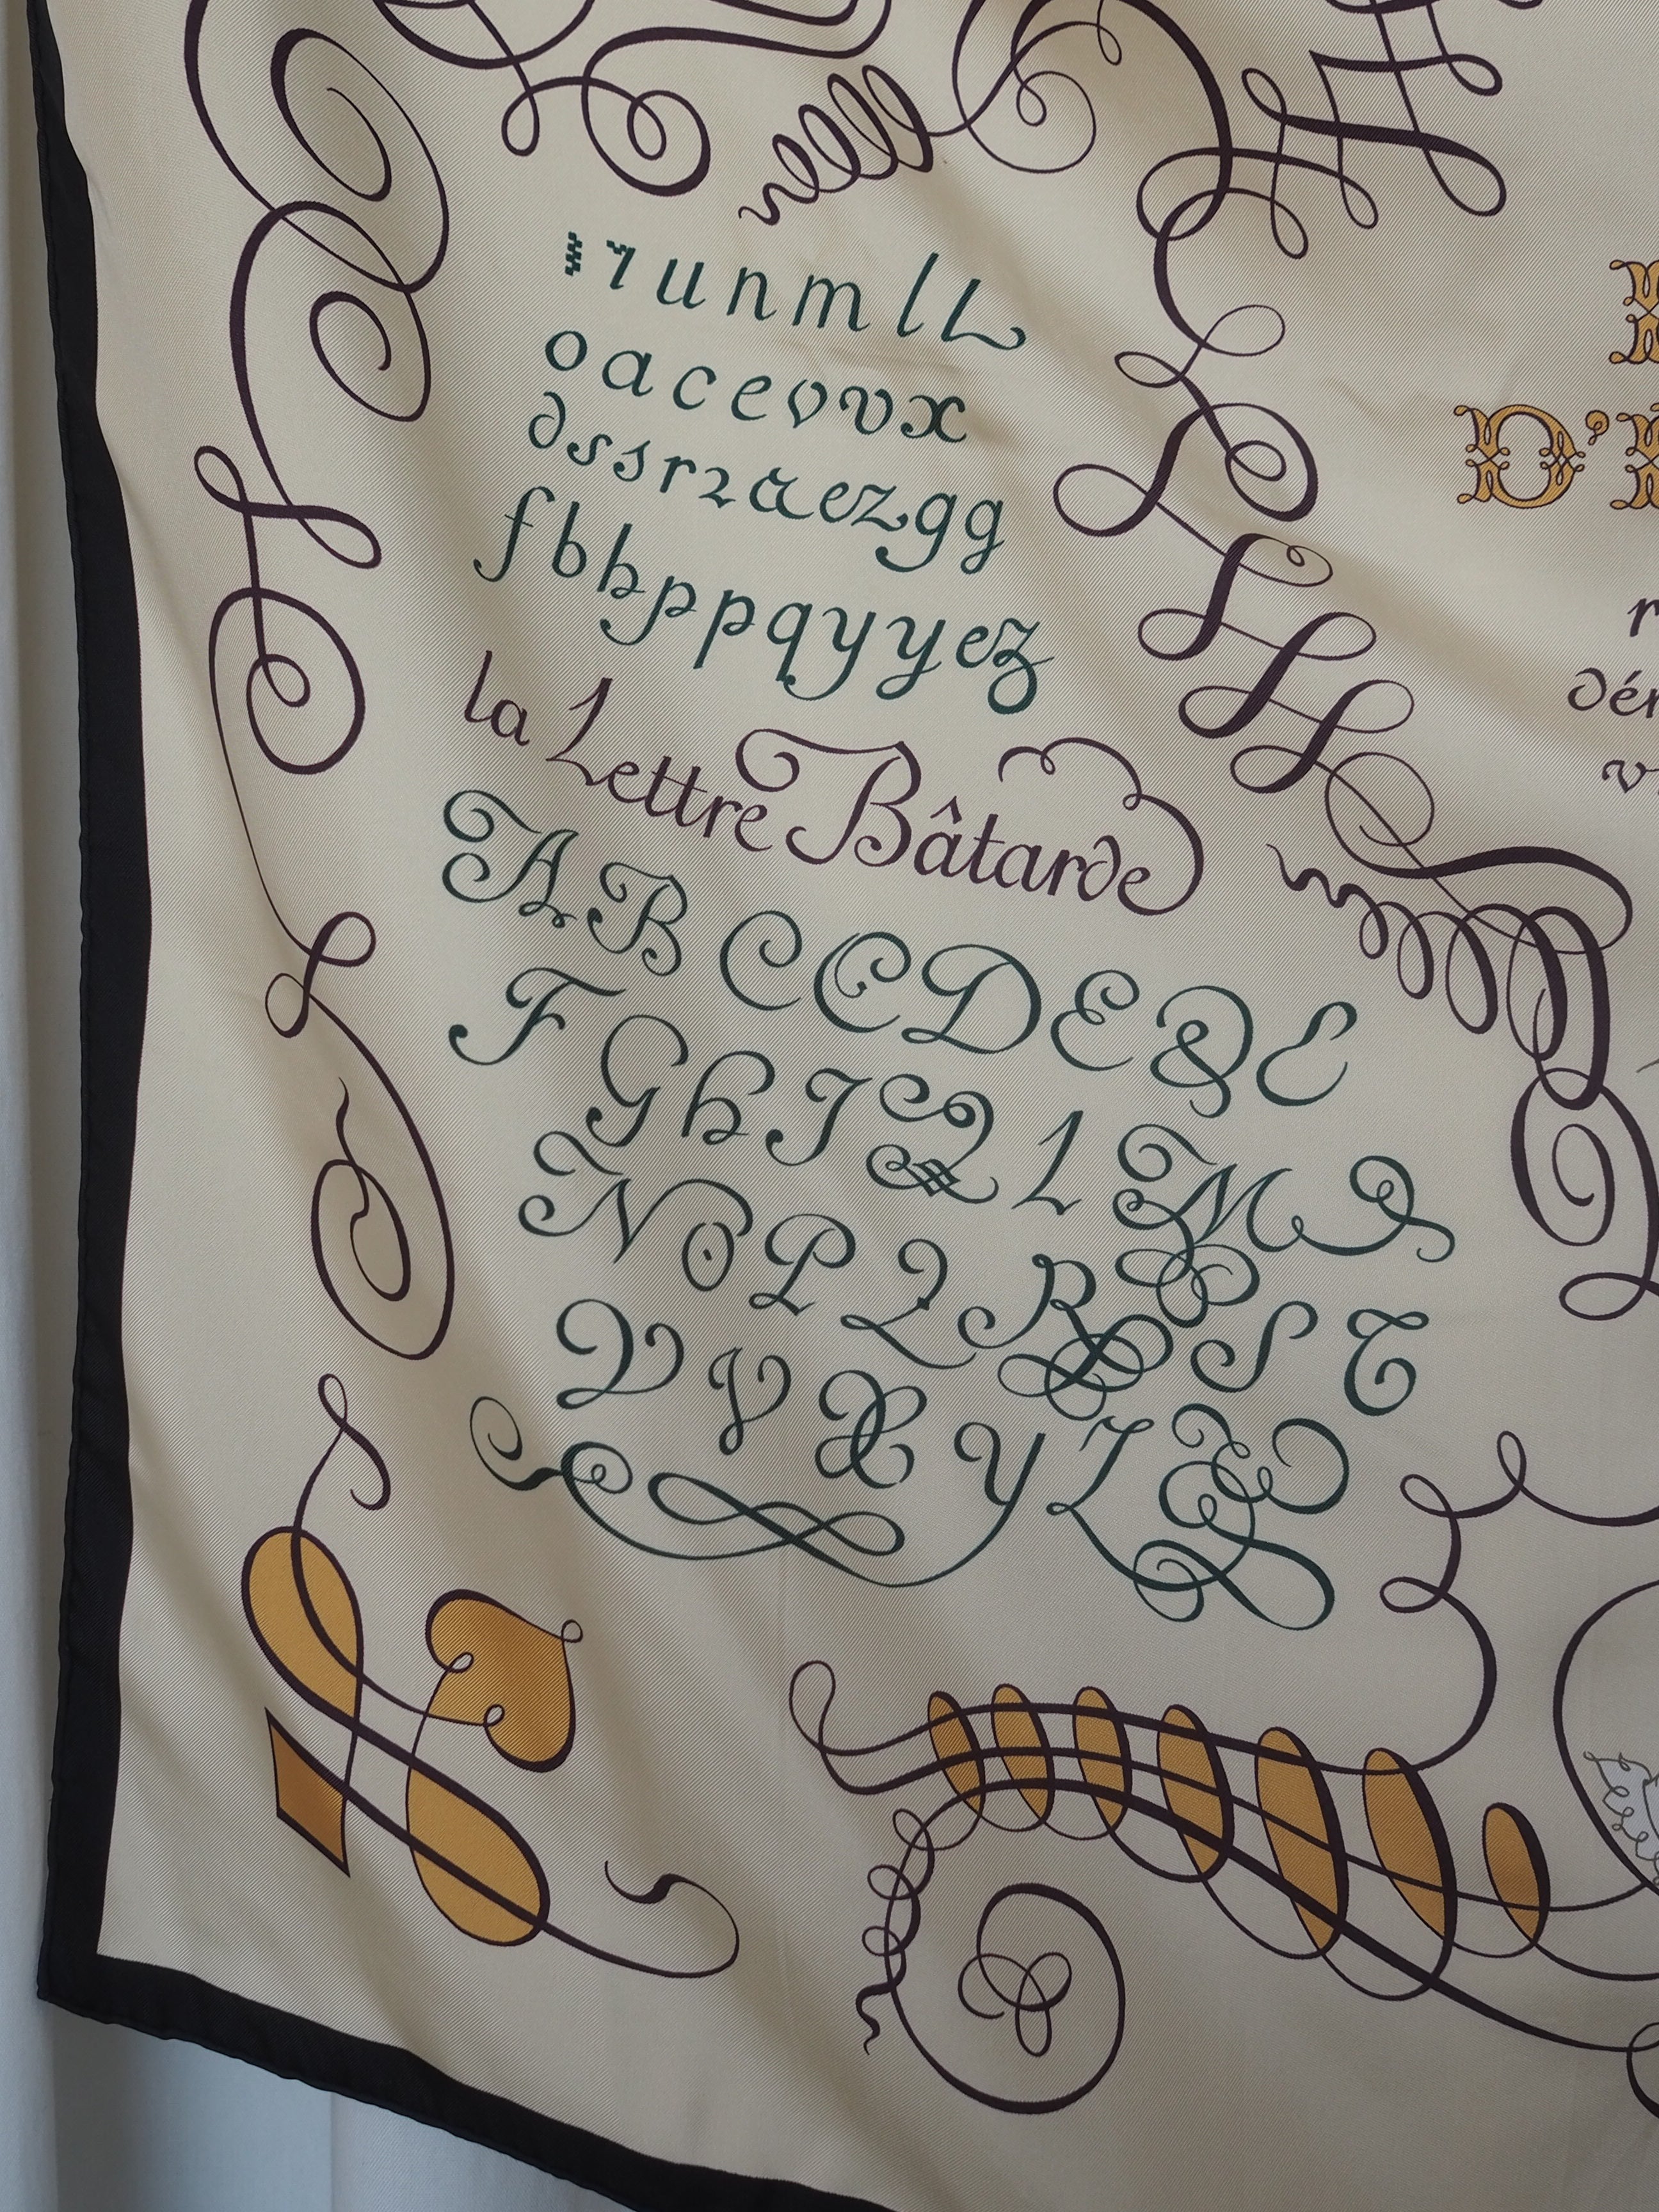 ı u n m l L
o a c e v v x
d s s r 2 a e z g g
f b h p p q y y e z
la Lettre Bâtarde
A B C C D E & E
F G h I L M
N O P Q R S T
V V X Y Z
D'